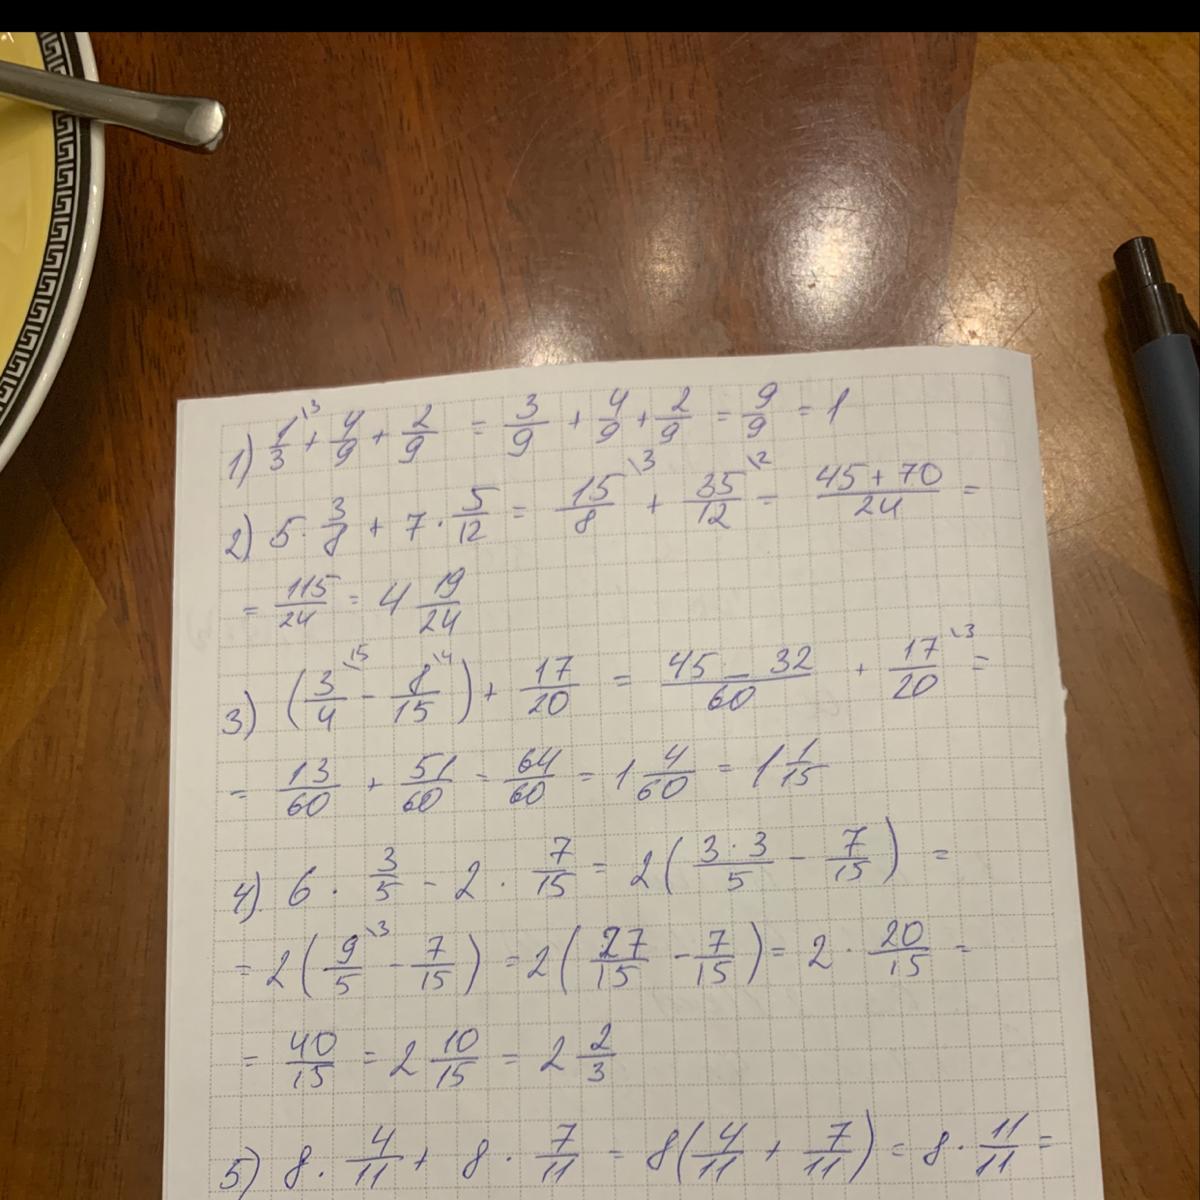 1) 1/3 \3 + 4/9 + 2/9 = 3/9 + 4/9 + 2/9 = 9/9 = 1
2) 5 · 3/8 + 7 · 5/12 = 15/8 \3 + 35/12 \2 = (45 + 70)/24 =
= 115/24 = 4 19/24
3) (3/4 \15 - 8/15 \4) + 17/20 = (45 - 32)/60 + 17/20 \3 =
= 13/60 + 51/60 = 64/60 = 1 4/60 = 1 1/15
4) 6 · 3/5 - 2 · 7/15 = 2((3 · 3)/5 - 7/15) =
= 2(9/5 \3 - 7/15) = 2(27/15 - 7/15) = 2 · 20/15 =
= 40/15 = 2 10/15 = 2 2/3
5) 8 · 4/11 + 8 · 7/11 = 8(4/11 + 7/11) = 8 · 11/11 =